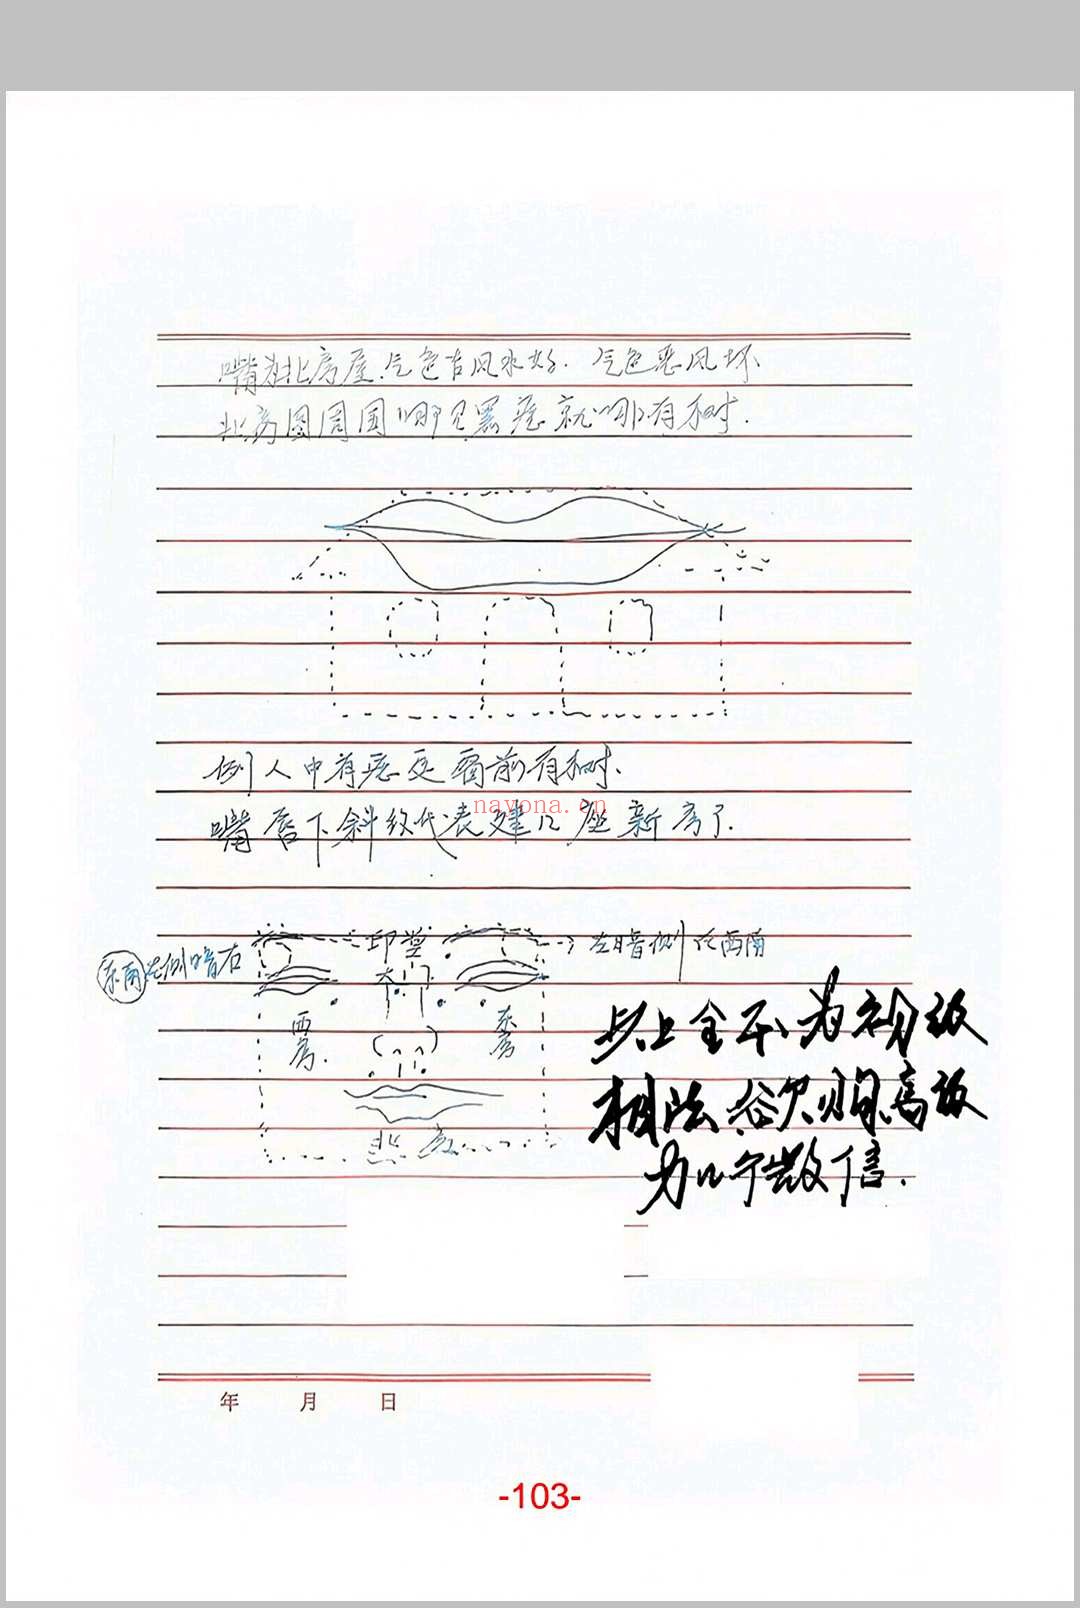 嘴为北房屋.气色吉风水好.气色恶风坏
北房圆周围哪见黑痣就哪有树.
例人中有痣是窗前有树.
nayona.cn
嘴唇下斜纹代表建几座新房了.
印堂
左暗侧在西南
东南左侧暗右
大门
西房.
东房
以上全不为初级
相法欲购高级
为几个数信.
北房
年 月 日
-103-